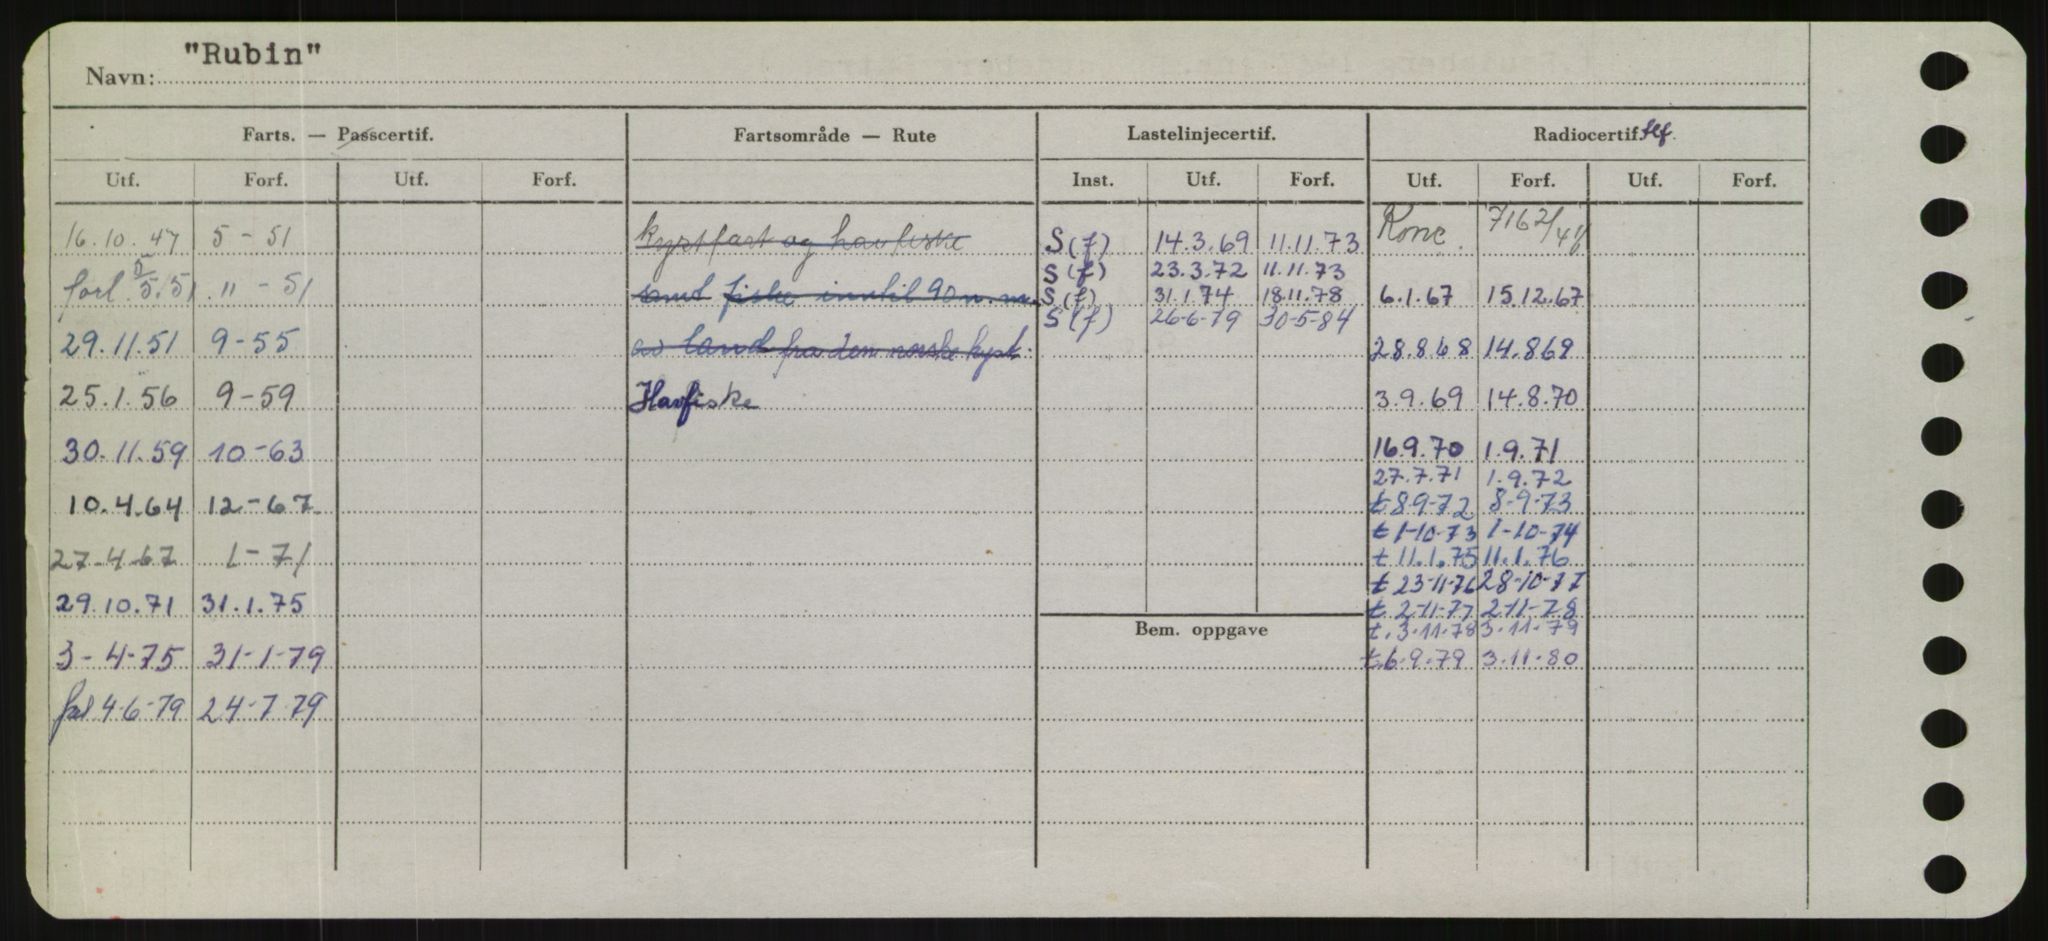 Navn: "Rubin"
Farts. — Passcertif. Fartsområde — Rute Lastelinjecertif. Radiocertif. tlf.
Utf. Forf. Utf. Forf. Inst. Utf. Forf. Utf. Forf. Utf. Forf.
16.10.47 5-51 kystfart og havfiske S(f) 14.3.69 11.11.73 Konc. 7162/
S(f) 23.3.72 11.11.73
forl. 5.51 11-51 samt fiske inntil 90 n.m. S(f) 31.1.74 18.11.78 6.1.67 15.12.67
S(f) 26-6-79 30-5-84
29.11.51 9-55 av land fra den norske kyst. 28.8.68 14.8.69
25.1.56 9-59 Havfiske 3.9.69 14.8.70
30.11.59 10-63 16.9.70 1.9.71
27.7.71 1.9.72
10.4.64 12-67 t 8-9-72 8-9-73
t 1-10-73 1-10-74
27-4-67 1-71 t 11.1.75 11.1.76
t 23-11-76 28-10-77
29.10.71 31.1.75 t. 2-11-77 2-11-78
Bem. oppgave t. 3-11-78 3-11-79
3-4-75 31-1-79 t. 6-9-79 3-11-80
forl 4-6-79 24-7-79